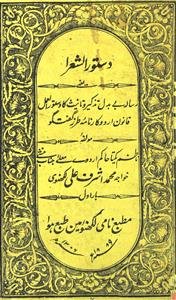 دستور الشعرا
رسالہ بے بدل تذکیر و تانیث کا دستور العمل
قانون اردو کارنامہ طرز گفتگو
مولفہ
خواجہ محمد اشرف علی لکھنوی
بار اول
مطبع نامی لکھنؤ مین طبع ہوا